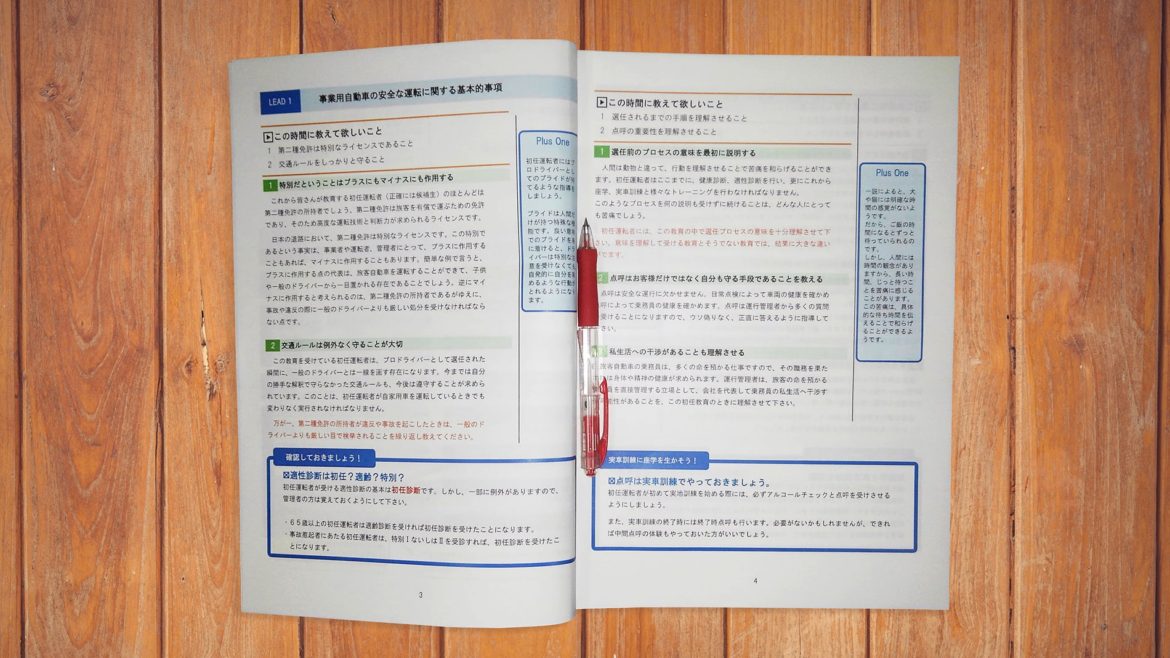 LEAD 1
事業用自動車の安全な運転に関する基本的事項
この時間に教えて欲しいこと
1 第二種免許は特別なライセンスであること
2 交通ルールをしっかりと守ること
1 特別だということはプラスにもマイナスにも作用する
これから皆さんが教育する初任運転者（正確には候補生）のほとんどは
第二種免許の所持者でしょう、第二種免許は旅客を有償で運ぶための免許
であり、そのため高度な運転技術と判断力が求められるライセンスです。
日本の道路において、第二種免許は特別なライセンスです。この特別で
あるという事実は、事業者や運転者、管理者にとって、プラスに作用する
こともあれば、マイナスに作用することもあります。簡単な例で言うと、
プラスに作用する点の代表は、旅客自動車を運転することができて、子供
や一般のドライバーから一目置かれる存在であることでしょう。逆にマイ
ナスに作用すると考えられるのは、第二種免許の所持者であるがゆえに、
事故や違反の際に一般のドライバーよりも厳しい処分を受けなければなら
ない点です。
2 交通ルールは例外なく守ることが大切
この教育を受けている初任運転者は、プロドライバーとして選任された
瞬間に、一般のドライバーとは一線を画す存在になります。今までは自分
の勝手な解釈で守らなかった交通ルールも、今後は遵守することが求めら
れています。このことは、初任運転者が自家用車を運転しているときでも
変わりなく実行されなければなりません。
万が一、第二種免許の所持者が違反や事故を起こしたときは、一般のド
ライバーよりも厳しい目で検挙されることを繰り返し教えてください。
Plus One
初任運転者にはプ
ロドライバーとし
てのプライドが持
てるような指導を
しましょう。
プライドは人間だ
けが持つ特殊な
指です。良い意味
でのプライドを
に着けると、ドラ
イバーは特別な
意を受けなくても
自発的に自分を
めるような行動が
とれるようにな
ます。
確認しておきましょう！
☒適性診断は初任？適齢？特別？
初任運転者が受ける適性診断の基本は初任診断です。しかし、一部に例外がありますので、
管理者の方は覚えておくようにして下さい。
・６５歳以上の初任運転者は適齢診断を受ければ初任診断を受けたことになります。
・事故惹起者にあたる初任運転者は、特別Ⅰないしは Ⅱを受診すれば、初任診断を受けたこ
とになります。
3
この時間に教えて欲しいこと
1 選任されるまでの手順を理解させること
2 点呼の重要性を理解させること
1 選任前のプロセスの意味を最初に説明する
人間は動物と違って、行動を理解させることで苦痛を和らげることができ
ます。初任運転者はここまでに、健康診断、適性診断を行い、更にこれから
座学、実車訓練と様々なトレーニングを行わなければなりません。
このようなプロセスを何の説明も受けずに続けることは、どんな人にとって
も苦痛でしょう。
初任運転者には、この教育の中で選任プロセスの意味を十分理解させて下
さい。意味を理解して受ける教育とそうでない教育では、結果に大きな違い
がでます。
点呼はお客様だけではなく自分も守る手段であることを教える
点呼は安全な運行に欠かせません。日常点検によって車両の健康を確かめ
呼によって乗務員の健康を確かめます。点呼は運行管理者から多くの質問
受けることになりますので、ウソ偽りなく、正直に答えるように指導して
さい。
私生活への干渉があることも理解させる
旅客自動車の乗務員は、多くの命を預かる仕事ですので、その職務を果た
は身体や精神の健康が求められます。運行管理者は、旅客の命を預かる
員を直接管理する立場として、会社を代表して乗務員の私生活へ干渉す
可能性があることを、この初任教育のときに理解させて下さい。
Plus One
一説によると、犬
や猫には明確な時
間の感覚がないよ
うです。
だから、ご飯の時
間になるとずっと
待っていられるの
です。
しかし、人間には
時間の観念があり
ますから、長い時
間、じっと待つこ
とを苦痛に感じる
ことがあります。
この苦痛は、具体
的な待ち時間を伝
えることで和らげ
ることができるよ
うです。
実車訓練に座学を生かそう！
☒点呼は実車訓練でやっておきましょう。
初任運転者が初めて実地訓練を始める際には、必ずアルコールチェックと点呼を受けさせる
ようにしましょう。
また、実車訓練の終了時には終了時点呼も行います。必要がないかもしれませんが、できれ
ば中間点呼の体験もやっておいた方がいいでしょう。
4